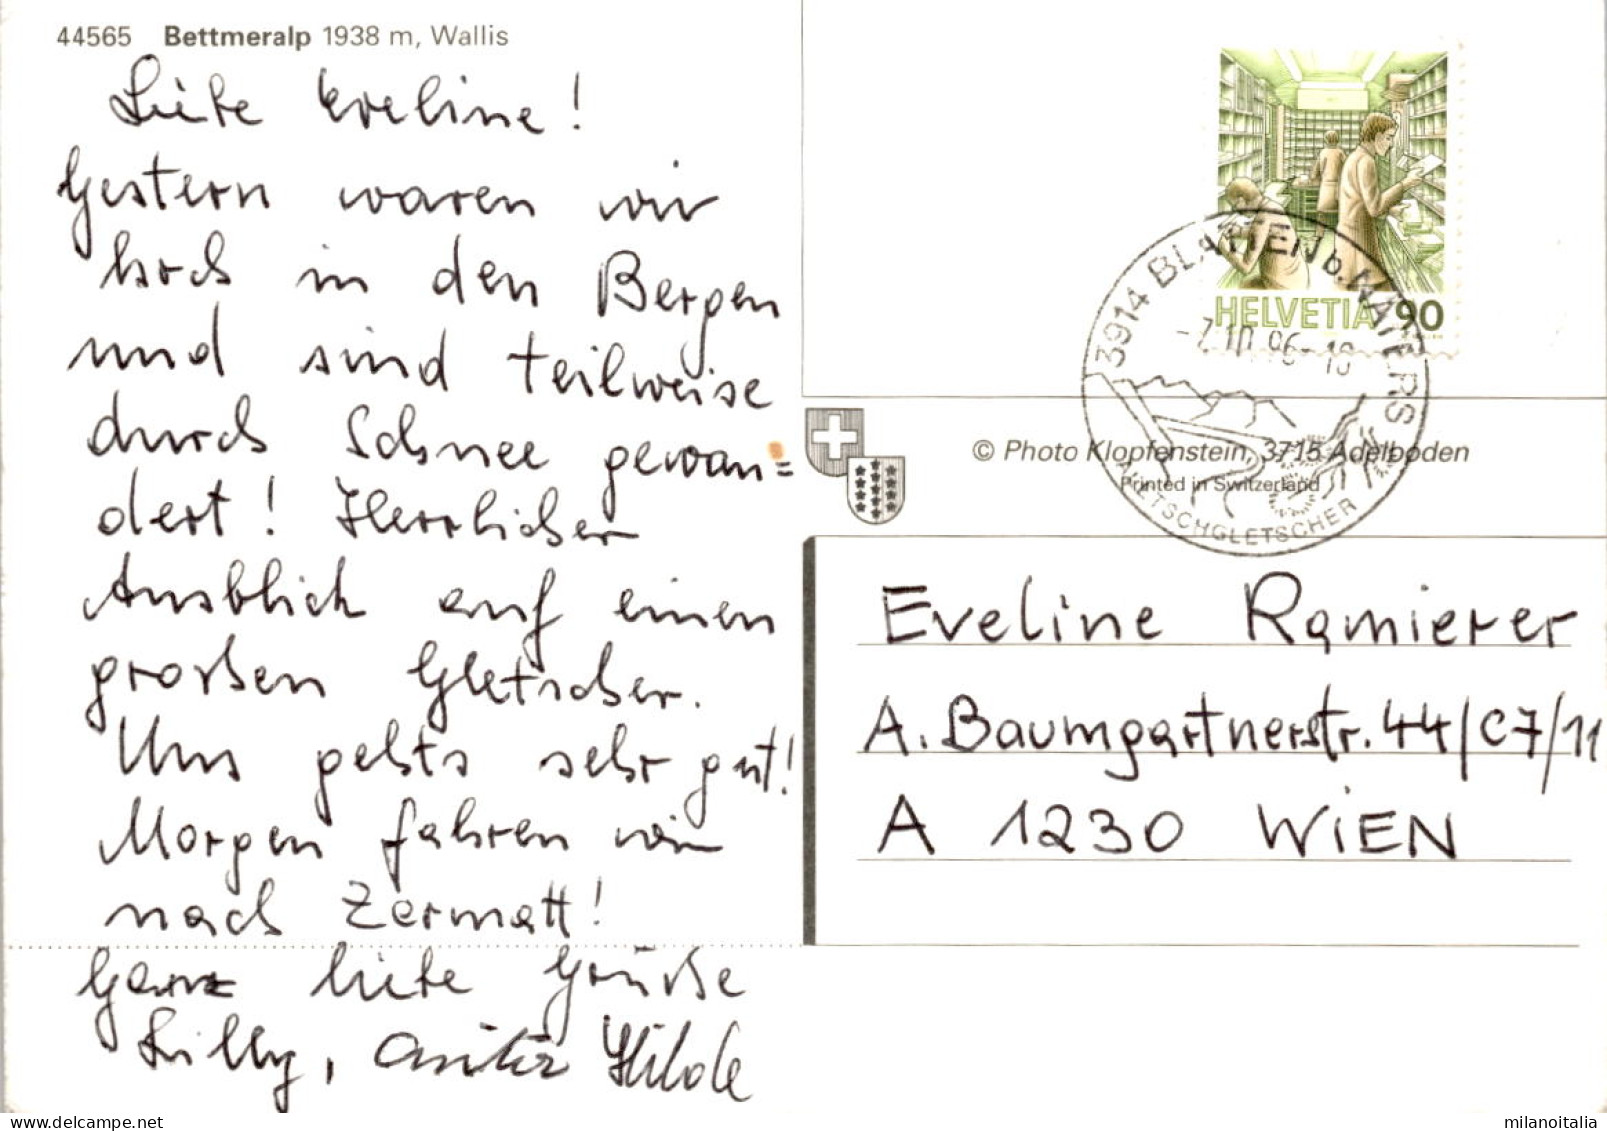 44565 Bettmeralp 1938 m, Wallis
Liebe Eveline!
Gestern waren wir
hoch in den Bergen
und sind teilweise
durch Schnee gewan=
dert! Herrlicher
Ausblick auf einen
großen Gletscher.
Uns gehts sehr gut!
Morgen fahren wir
nach Zermatt!
Ganz liebe Grüße
Lilly, Anita Hilde
HELVETIA 90
3914 BLATTEN b. NATERS
-7.10.96-18
ALETSCHGLETSCHER
© Photo Klopfenstein, 3715 Adelboden
Printed in Switzerland
Eveline Ramierer
A. Baumgartnerstr. 44/C7/11
A 1230 WIEN
delcampe.net
milanoitalia